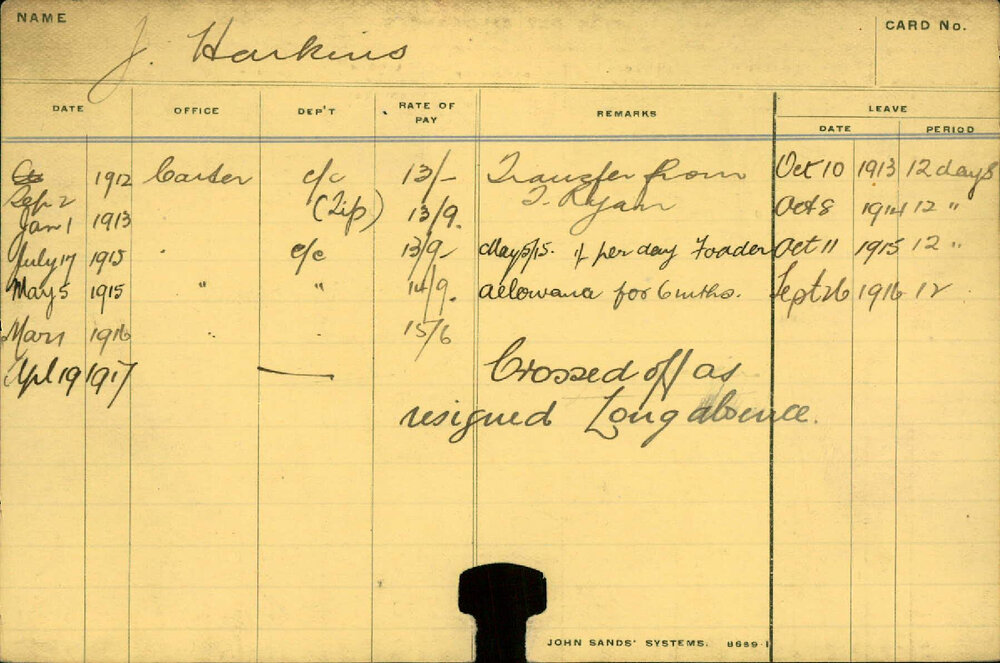 NAME J. Harkins CARD No.
DATE OFFICE DEP'T RATE OF PAY REMARKS LEAVE
DATE PERIOD
Sep 2 1912 Carter c/c 13/- Transfer from Oct 10 1913 12 days
Jan 1 1913 (Tip) 13/9. T. Ryan Oct 8 1914 12 "
July 17 1915 " c/c 13/9- May 5/15. 1/- per day Foader Oct 11 1915 12 "
May 5 1915 " " 14/9. allowance for 6 mths. Sept 26 1916 12
Mar 1 1916 " " 15/6
Apl 19 1917 — Crossed off as
resigned Long absence.
JOHN SANDS' SYSTEMS. 8689-1